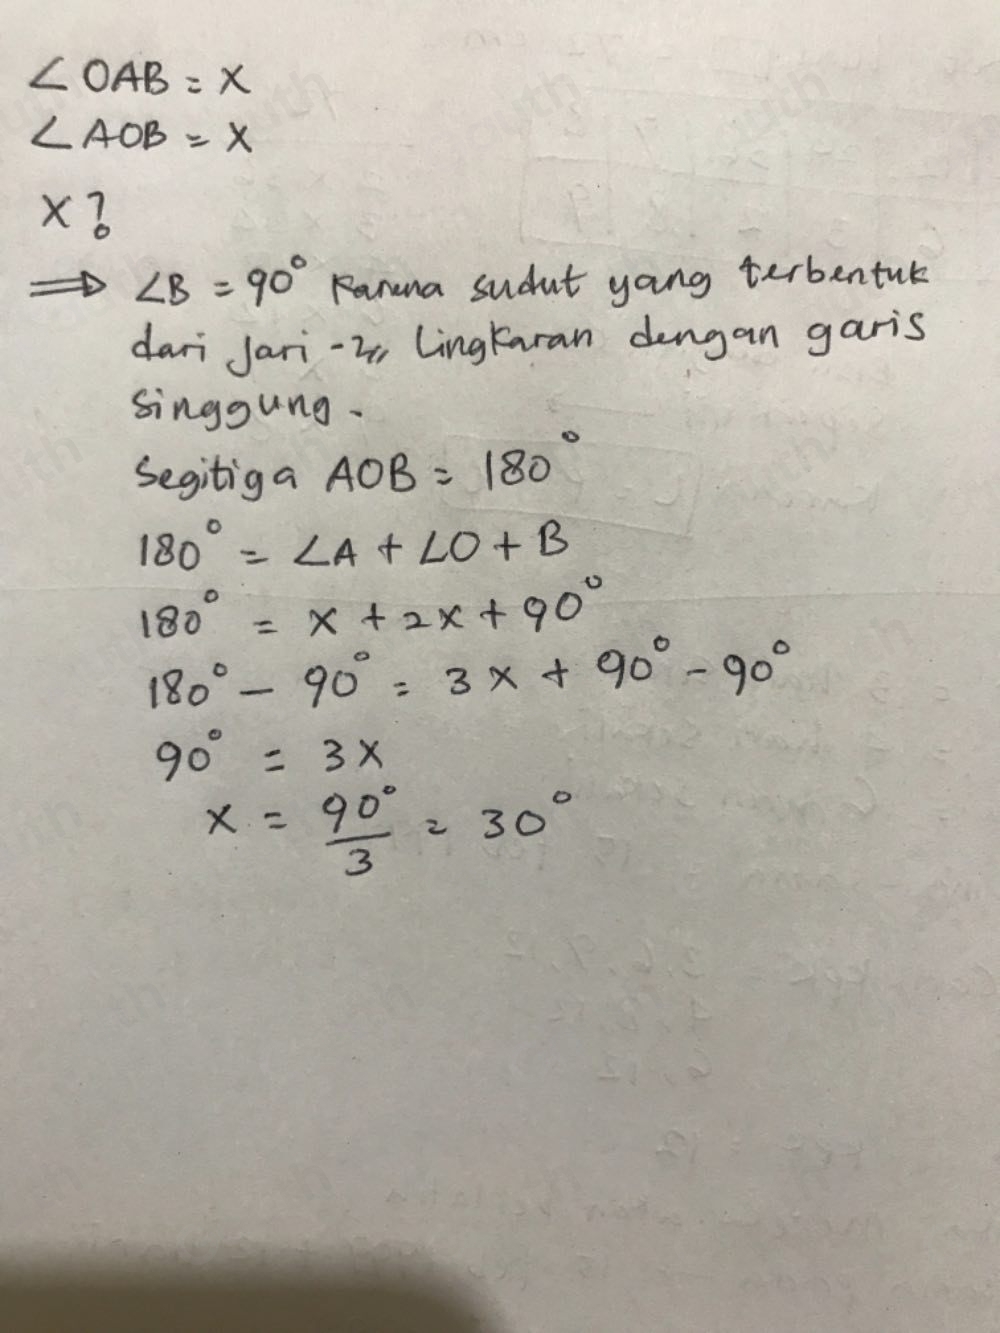 ∠OAB = x
∠AOB = x
x?
⇒ ∠B = 90° karena sudut yang terbentuk
dari jari-2 lingkaran dengan garis
singgung.
Segitiga AOB = 180°
180° = ∠A + ∠O + B
180° = x + 2x + 90°
180° - 90° = 3x + 90° - 90°
90° = 3x
x = 90°/3 = 30°